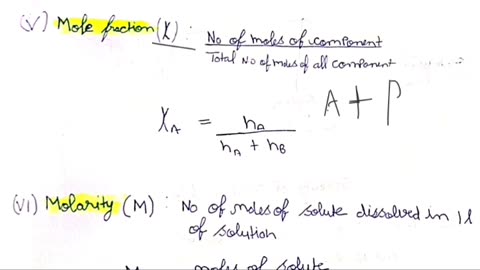 (V) Mole fraction (X) : No of moles of component
Total No of moles of all component
X_A = n_A / n_A + n_B
A + P
(VI) Molarity (M) : No of moles of solute dissolved in 1l
of solution
moles of solute